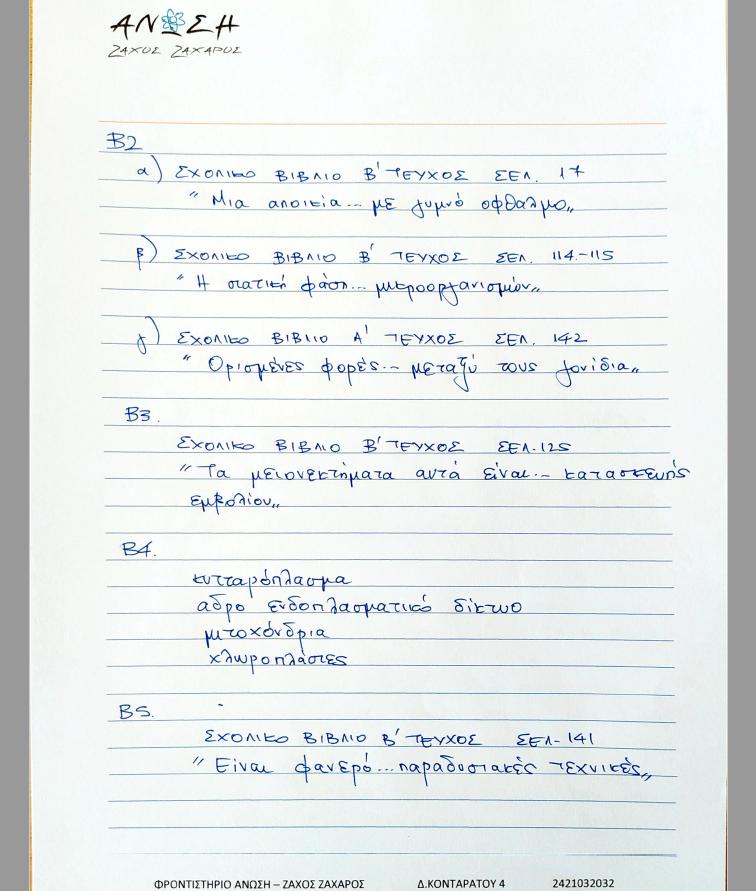 ΑΝΩΣΗ
ΖΑΧΟΣ ΖΑΧΑΡΟΣ
Β2
α) ΣΧΟΛΙΚΟ ΒΙΒΛΙΟ Β' ΤΕΥΧΟΣ ΣΕΛ. 17
"Μια αποικία... με γυμνό οφθαλμο"
β) ΣΧΟΛΙΚΟ ΒΙΒΛΙΟ Β' ΤΕΥΧΟΣ ΣΕΛ. 114-115
"Η στατική φάση... μικροοργανισμών"
γ) ΣΧΟΛΙΚΟ ΒΙΒΛΙΟ Α' ΤΕΥΧΟΣ ΣΕΛ. 142
"Ορισμένες φορές... μεταξύ τους γονίδια"
Β3.
ΣΧΟΛΙΚΟ ΒΙΒΛΙΟ Β' ΤΕΥΧΟΣ ΣΕΛ. 125
"Τα μειονεκτήματα αυτά είναι... κατασκευής
εμβολίου"
Β4.
κυτταρόπλασμα
αδρο ενδοπλασματικό δίκτυο
μιτοχόνδρια
χλωροπλάστες
Β5.
ΣΧΟΛΙΚΟ ΒΙΒΛΙΟ Β' ΤΕΥΧΟΣ ΣΕΛ. 141
"Είναι φανερό... παραδοσιακές τεχνικές"
ΦΡΟΝΤΙΣΤΗΡΙΟ ΑΝΩΣΗ – ΖΑΧΟΣ ΖΑΧΑΡΟΣ Δ.ΚΟΝΤΑΡΑΤΟΥ 4 2421032032